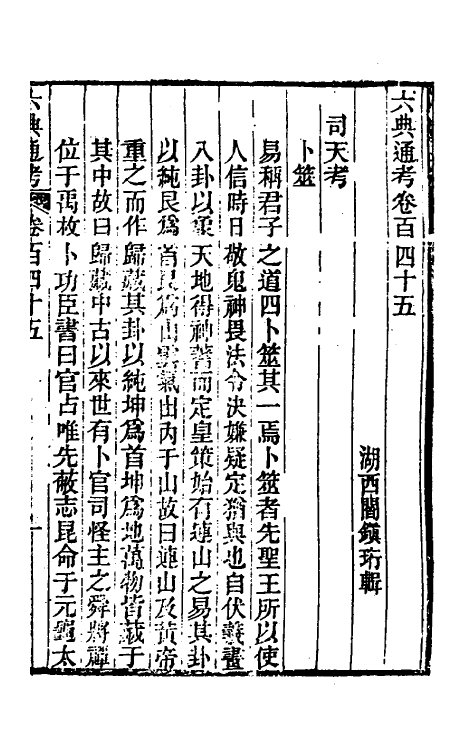 六典通考卷百四十五
湖西閻鎭珩輯
司天考
卜筮
易稱君子之道四卜筮其一焉卜筮者先聖王所以使
人信時日敬鬼神畏法令決嫌疑定猶與也自伏羲畫
八卦以象天地得神蓍而定皇策始有連山之易其卦
以純艮爲首艮爲山雲氣出內于山故曰連山及黃帝
重之而作歸藏其卦以純坤爲首坤爲地萬物皆藏于
其中故曰歸藏中古以來世有卜官司怪主之舜將禪
位于禹枚卜功臣書曰官占唯先蔽志昆命于元龜太
六典通考 卷百四十五 一